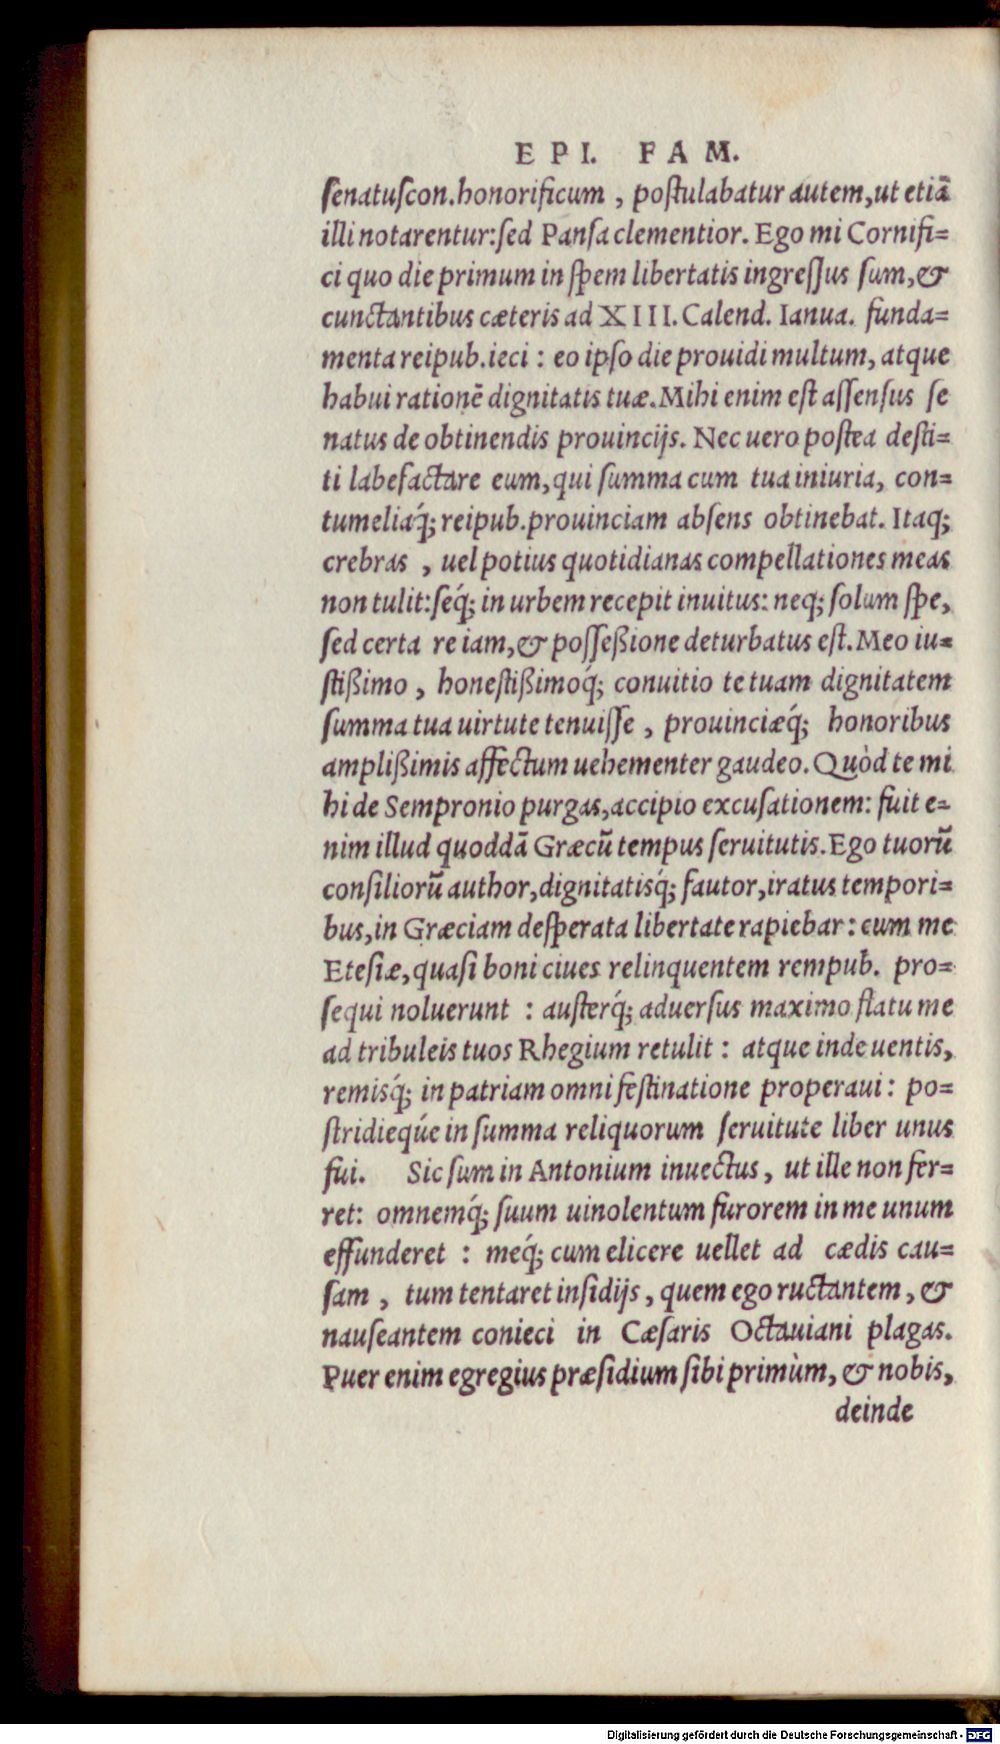 EPI. FAM.
ſenatuſcon.honorificum , poſtulabatur autem,ut etiã
illi notarentur:ſed Panſa clementior. Ego mi Cornifi=
ci quo die primum in ſpem libertatis ingreſſus ſum,&
cunctantibus cæteris ad XIII. Calend. Ianua. funda=
menta reipub.ieci : eo ipſo die prouidi multum, atque
habui rationē dignitatis tuæ.Mihi enim eſt aſſenſus ſe
natus de obtinendis prouincijs. Nec uero poſtea deſti=
ti labefactare eum,qui ſumma cum tua iniuria, con=
tumeliaq́; reipub.prouinciam abſens obtinebat. Itaq;
crebras , uel potius quotidianas compellationes meas
non tulit:ſeq́; in urbem recepit inuitus: neq; ſolum ſpe,
ſed certa re iam,& poſſeßione deturbatus eſt.Meo iu=
ſtißimo , honeſtißimoq́; conuitio te tuam dignitatem
ſumma tua uirtute tenuiſſe , prouinciæq́; honoribus
amplißimis affectum uehementer gaudeo. Quòd te mi
hi de Sempronio purgas,accipio excuſationem: fuit e=
nim illud quoddã Græcũ tempus ſeruitutis.Ego tuorũ
conſiliorũ author,dignitatisq́; fautor,iratus tempori=
bus,in Græciam deſperata libertate rapiebar : cum me
Eteſiæ,quaſi boni ciues relinquentem rempub. pro=
ſequi noluerunt : auſterq́; aduerſus maximo flatu me
ad tribuleis tuos Rhegium retulit : atque inde uentis,
remisq́; in patriam omni feſtinatione properaui : po=
ſtridieq́ue in ſumma reliquorum ſeruitute liber unus
fui. Sic ſum in Antonium inuectus, ut ille non fer=
ret: omnemq́; ſuum uinolentum furorem in me unum
effunderet : meq́; cum elicere uellet ad cædis cau=
ſam , tum tentaret inſidijs , quem ego ructantem, &
nauſeantem conieci in Cæſaris Octauiani plagas.
Puer enim egregius præſidium ſibi primùm, & nobis,
deinde
Digitalisierung gefördert durch die Deutsche Forschungsgemeinschaft - DFG